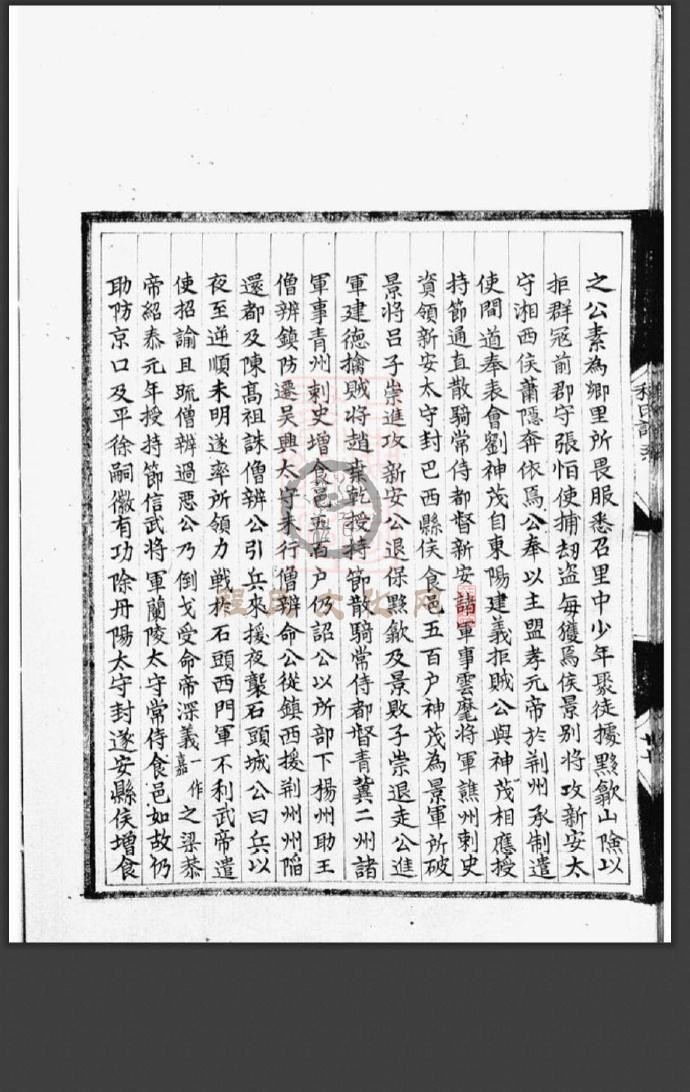 之公素為鄉里所畏服悉召里中少年聚徒據黟歙山險以
拒群寇前郡守張怕使捕刼盜每獲焉侯景别將攻新安太
守湘西侯蕭隱奔依焉公奉以主盟孝元帝於荆州承制遣
使間道奉表會劉神茂自東陽建義拒賊公與神茂相應授
持節通直散騎常侍都督新安諸軍事雲麾將軍譙州刺史
資領新安太守封巴西縣侯食邑五百户神茂為景軍所破
景將吕子崇進攻新安公退保黟歙及景敗子崇退走公進
軍建德擒賊將趙桒乾授持節散騎常侍都督青冀二州諸
軍事青州刺史增食邑五百户仍詔公以所部下楊州助王
僧辨鎮防遷吴興太守未行僧辨命公從鎮西援荆州州陷
還都及陳髙祖誅僧辨公引兵來援夜襲石頭城公曰兵以
夜至逆順未明遂率所領力戰於石頭西門軍不利武帝遣
使招諭且䟽僧辨過惡公乃倒戈受命帝深義一作嘉之梁㳟
帝紹泰元年授持節信武將軍蘭陵太守常侍食邑如故仍
助防京口及平徐嗣徽有功除丹陽太守封遂安縣侯增食
程氏文化网